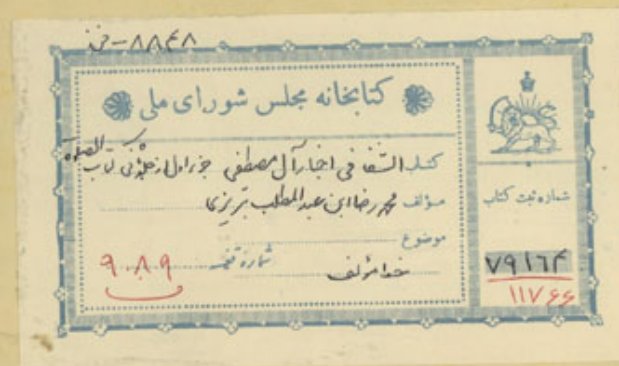 ۸۸۴۸ - خ
کتابخانه مجلس شورای ملی
کتاب الشفا فی اخبار آل مصطفی جزء اول از کتاب الصلوة
مؤلف محمد رضا ابن عبد المطلب تبریزی
موضوع
شماره قفسه ۹۰۸۹
خط مؤلف
شماره ثبت کتاب
۷۹۱۶۴
۱۱۷۶۶